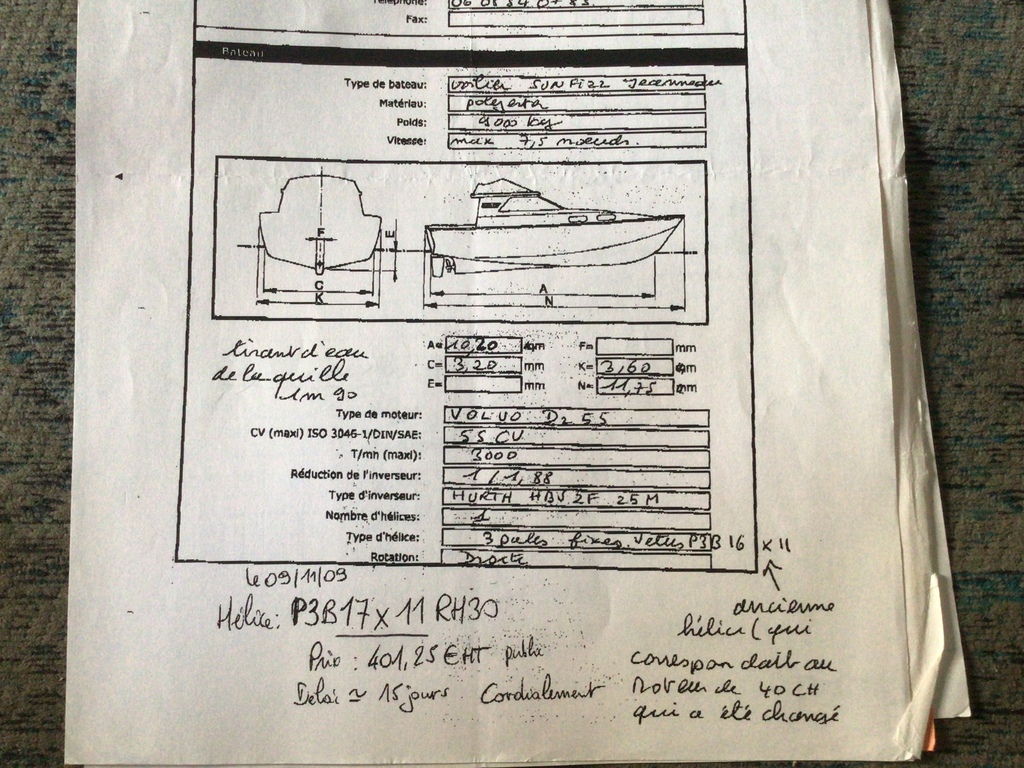 Téléphone:
Fax:
Bateau
Type de bateau: voilier SUN FIZZ Jeanneau
Matériau: polyester
Poids: 9000 kg
Vitesse: max 7,5 noeuds.
F E
C
K
A
N
A= 10,20 m F= mm
C= 3,20 m K= 3,60 m
E= mm N= 11,75 m
tirant d'eau
de la quille
1m 90
Type de moteur: VOLVO D2 55
CV (maxi) ISO 3046-1/DIN/SAE: 55 CV
T/mn (maxi): 3000
Réduction de l'inverseur: 1 / 1,88
Type d'inverseur: HURTH HBS 2F 25M
Nombre d'hélices: 1
Type d'hélice: 3 pales fixes. Vetus P3B 16 x 11
Rotation: Droite
le 09/11/09
Hélice: P3B17x11 RH30
Prix : 401,25 € HT public
Delai ≃ 15 jours Cordialement
ancienne
hélice (qui
correspondait au
moteur de 40 CH
qui a été changé